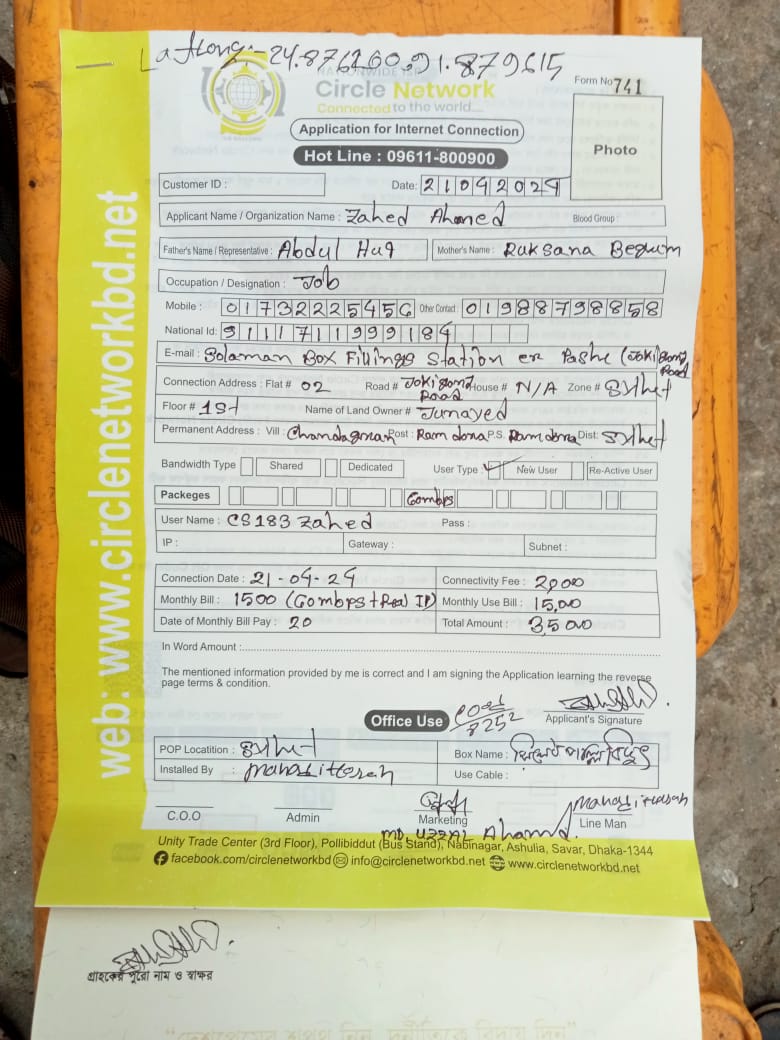 Lat Long:- 24.876260, 91.879615
NATIONWIDE ISP
Circle Network
Connected to the world....
Form No 741
Application for Internet Connection
Photo
Hot Line : 09611-800900
Customer ID :
Date: 21042024
Applicant Name / Organization Name : Zahed Ahmed Blood Group :
Father's Name / Representative : Abdul Huq Mother's Name : Ruksana Begum
Occupation / Designation : Job
Mobile : 01732225456 Other Contact : 01988798858
National Id: 9111711999184
E-mail : Solaman Box Fillings Station er Pashe (Jokigong Road
Connection Address : Flat # 02 Road # Jokigong Road House # N/A Zone # Sylhet
Floor # 1st Name of Land Owner # Junayed
Permanent Address : Vill : Post : P.S. Dist: Sylhet
Bandwidth Type Shared Dedicated User Type : ✓ New User Re-Active User
Packeges 60mbps
User Name : CS183 Zahed Pass :
IP : Gateway : Subnet :
Connection Date : 21-04-24 Connectivity Fee : 2000
Monthly Bill : 1500 (60mbps + Real IP) Monthly Use Bill : 1500
Date of Monthly Bill Pay : 20 Total Amount : 3500
In Word Amount :
The mentioned information provided by me is correct and I am signing the Application learning the reverse
page terms & condition.
Office Use code 8252 Applicant's Signature
POP Locatition : Sylhet Box Name : সিলেট পল্লী বিদ্যুৎ
Installed By : Use Cable :
C.O.O Admin Marketing Line Man
MD. UZZAL Ahamd.
Unity Trade Center (3rd Floor), Pollibiddut (Bus Stand), Nabinagar, Ashulia, Savar, Dhaka-1344
facebook.com/circlenetworkbd info@circlenetworkbd.net www.circlenetworkbd.net
web: www.circlenetworkbd.net
গ্রাহকের পুরো নাম ও স্বাক্ষর
"দেশপ্রেমের শপথ নিন, দুর্নীতিকে বিদায় দিন"